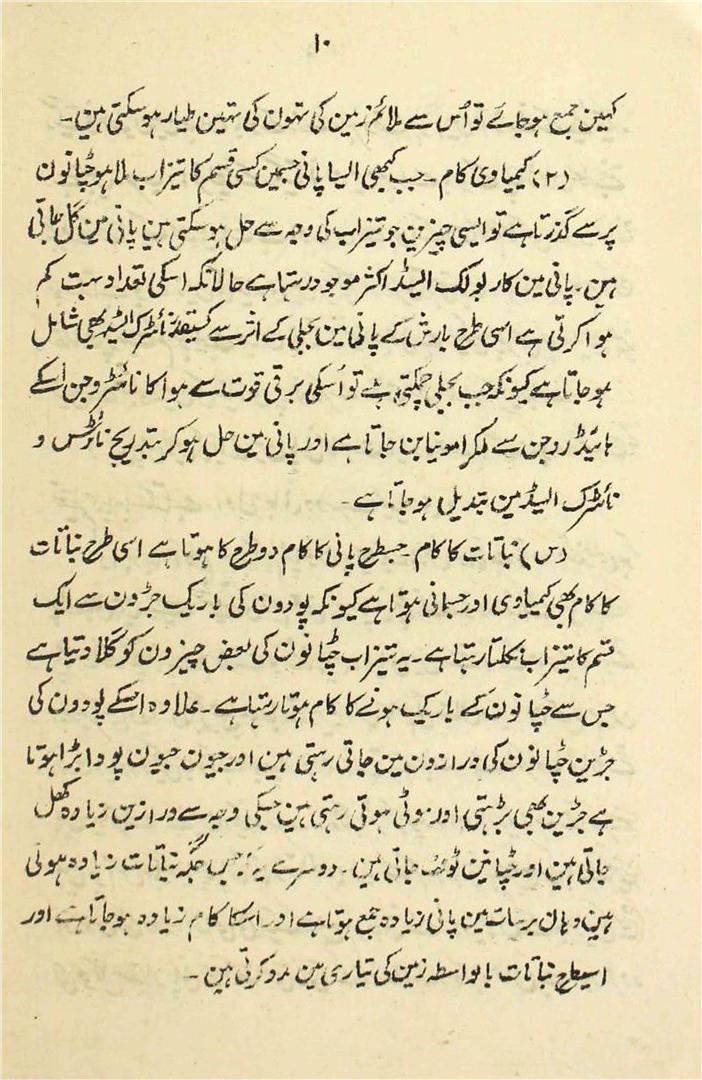 ۱۰
کہین جمع ہوجائے تو اُس سے ملائم زمین کی تہون کی تہین طیار ہوسکتی ہین۔
(۲) کیمیاوی کام۔ جب کبھی ایسا پانی جسمین کسی قسم کا تیزاب ملا ہو چٹانون
پر سے گذرتا ہے تو ایسی چیزین جو تیزاب کی وجہ سے حل ہوسکتی ہین پانی مین گل جاتی
ہین۔ پانی مین کاربولک ایسڈ اکثر موجود رہتا ہے حالانکہ اسکی تعداد بہت کم
ہوا کرتی ہے اسی طرح بارش کے پانی مین بجلی کے اثر سے کسیقدر نائٹرک ایسڈ بھی شامل
ہوجاتا ہے کیونکہ جب بجلی چمکتی ہے تو اُسکی برقی قوت سے ہوا کا نائٹروجن اسکے
ہائیڈروجن سے ملکر امونیا بن جاتا ہے اور پانی مین حل ہوکر بتدریج نائٹرٹس و
نائٹرک ایسڈ مین تبدیل ہوجاتا ہے۔
(س) نباتات کا کام۔ جسطرح پانی کا کام دو طرح کا ہوتا ہے اسی طرح نباتات
کا کام بھی کیمیاوی اور جسمانی ہوتا ہے کیونکہ پودون کی باریک جڑون سے ایک
قسم کا تیزاب نکلتا رہتا ہے۔ یہ تیزاب چٹانون کی بعض چیزون کو گلا دیتا ہے
جس سے چٹانون کے باریک ہونے کا کام ہوتا رہتا ہے۔ علاوہ اسکے پودون کی
جڑین چٹانون کی درازون مین جاتی رہتی ہین اور جیون جیون پودا بڑا ہوتا
ہے جڑین بھی بڑہتی اور موٹی ہوتی رہتی ہین جسکی وجہ سے درازین زیادہ کھل
جاتی ہین اور چٹانین ٹوٹ جاتی ہین۔ دوسرے یہ کہ جس جگہ نباتات زیادہ ہوتی
ہین وہان برسات مین پانی زیادہ جمع ہوتا ہے اور اسکا کام زیادہ ہوجاتا ہے اور
اسیطرح نباتات بالواسطہ زمین کی تیاری مین مدد کرتی ہین۔